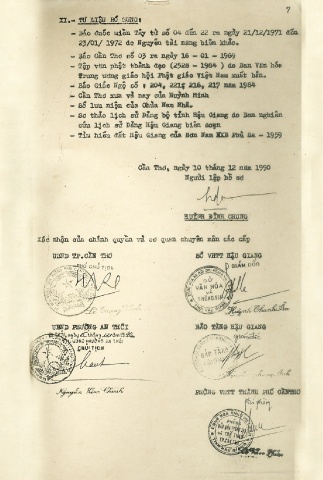 7
XI.- TƯ LIỆU BỔ SUNG:
- Báo đuốc miền Tây từ số 04 đến 22 ra ngày 21/12/1971 đến
23/01/1972 do Nguyễn tải nang biên khảo.
- Báo Cần Thơ số 03 ra ngày 16 - 01 - 1989
- Tập văn phật thành đạo (2528 - 1984) do Ban Văn hóa
Trung ương giáo hội Phật giáo Việt Nam xuất bản.
- Báo Giác Ngộ số : 204, 221, 216, 217 năm 1984
- Cần Thơ xưa và nay của Huỳnh Minh
- Sổ lưu niệm của Chùa Nam Nhã.
- Sơ thảo lịch sử Đảng bộ tỉnh Hậu Giang do Ban nghiên
cứu lịch sử Đảng Hậu Giang biên soạn
- Tìm hiểu đất Hậu Giang của Sơn Nam NXB Phù Sa - 1959
Cần Thơ, ngày 10 tháng 12 năm 1990
Người lập hồ sơ
HUỲNH ĐÌNH CHUNG
Xác nhận của chính quyền và cơ quan chuyên môn các cấp
UBND TP.CẦN THƠ
SỞ VHTT HẬU GIANG
CHỦ TỊCH
GIÁM ĐỐC
SỞ
VĂN HÓA
THÔNG TIN
UBND PHƯỜNG AN THỚI
BẢO TÀNG HẬU GIANG
CHỦ TỊCH
BẢO TÀNG
PHÒNG VHTT THÀNH PHỐ CẦN THƠ